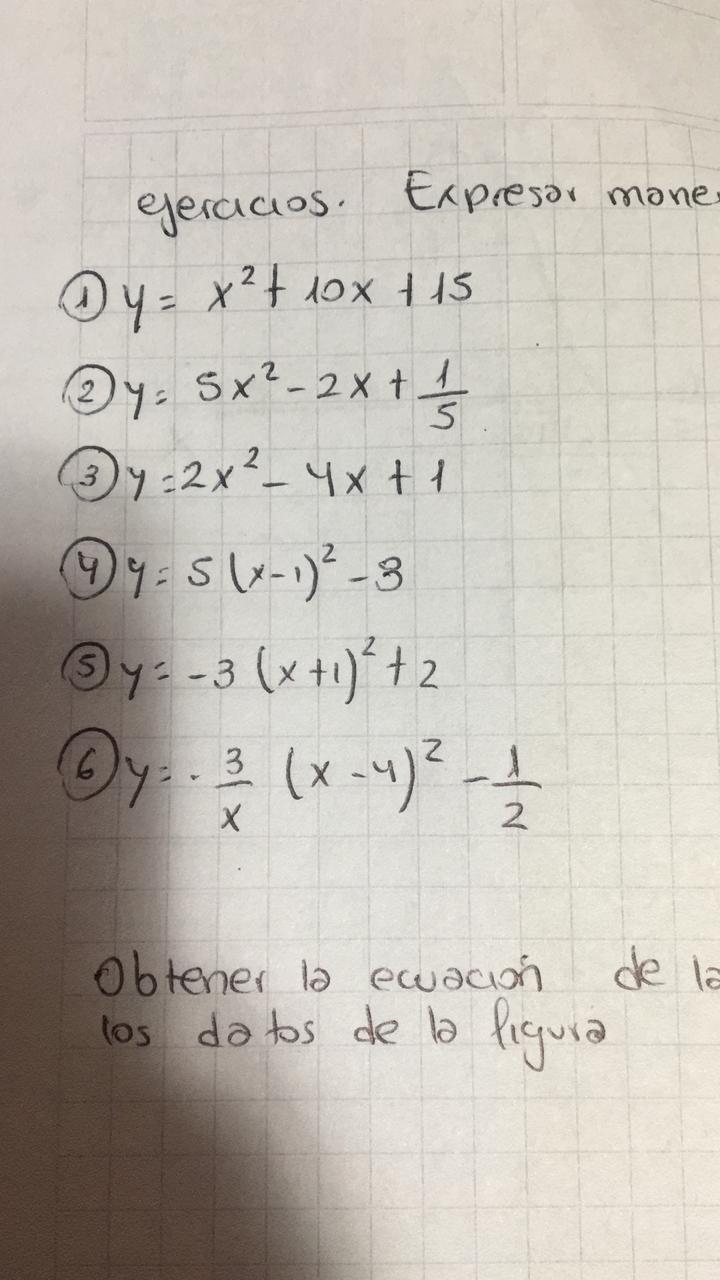 ejercicios. Expresar mane
① y = x² + 10x + 15
② y = 5x² - 2x + 1/5
③ y = 2x² - 4x + 1
④ y = 5 (x-1)² - 3
⑤ y = -3 (x+1)² + 2
⑥ y = - 3/x (x-4)² - 1/2
Obtener la ecuación de la
los datos de la figura